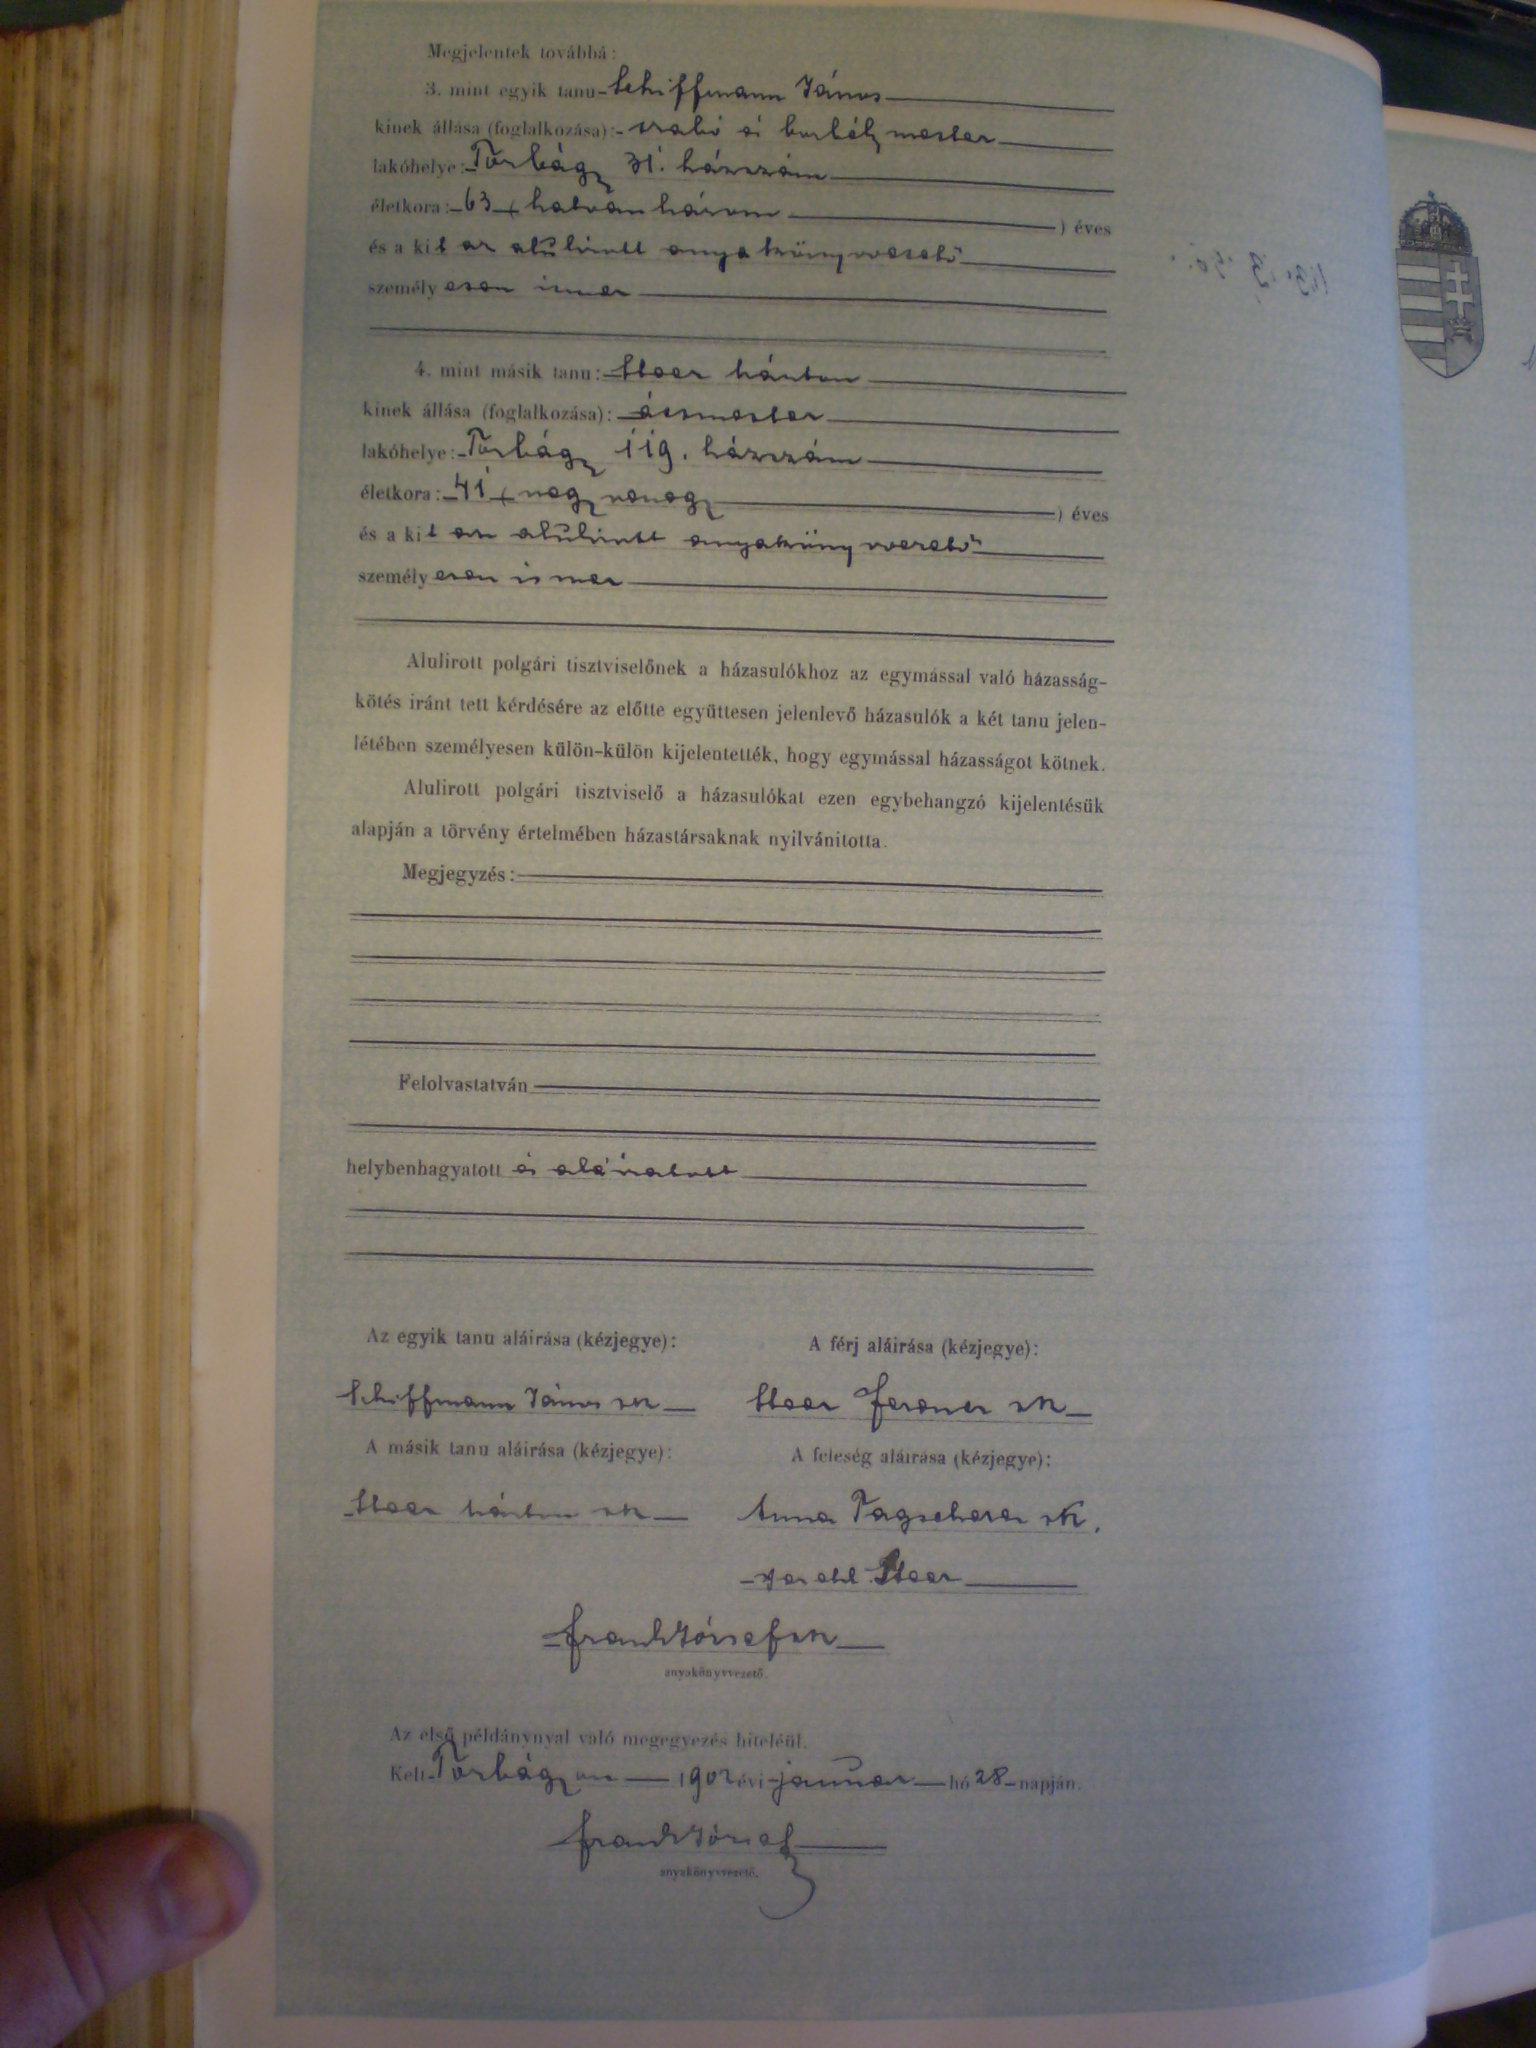 Megjelentek továbbá:
3. mint egyik tanu Schiffmann János
kinek állása (foglalkozása): szabó és borbély mester
lakóhelye: Torbágy 31. házszám
életkora: 63 ( hatvanhárom ) éves
és a kit az alulírott anyakönyvvezető
személyesen ismer
4. mint másik tanu: Steer Márton
kinek állása (foglalkozása): ácsmester
lakóhelye: Torbágy 119. házszám
életkora: 41 ( negyvenegy ) éves
és a kit az alulírott anyakönyvvezető
személyesen ismer
Alulirott polgári tisztviselőnek a házasulókhoz az egymással való házasság-
kötés iránt tett kérdésére az előtte együttesen jelenlevő házasulók a két tanu jelen-
létében személyesen külön-külön kijelentették, hogy egymással házasságot kötnek.
Alulirott polgári tisztviselő a házasulókat ezen egybehangzó kijelentésük
alapján a törvény értelmében házastársaknak nyilvánitotta.
Megjegyzés:
Felolvastatván
helybenhagyatott és aláíratott
Az egyik tanu aláirása (kézjegye):
A férj aláirása (kézjegye):
Schiffmann János sk
Steer Ferencz sk
A másik tanu aláirása (kézjegye):
A feleség aláirása (kézjegye):
Steer Márton sk
Anna Tagscherer sk.
verehl. Steer
Frank József sk
anyakönyvvezető.
Az első példánynyal való megegyezés hiteléül.
Kelt Torbágyon 1902 évi január hó 28 napján.
Frank József
anyakönyvvezető.